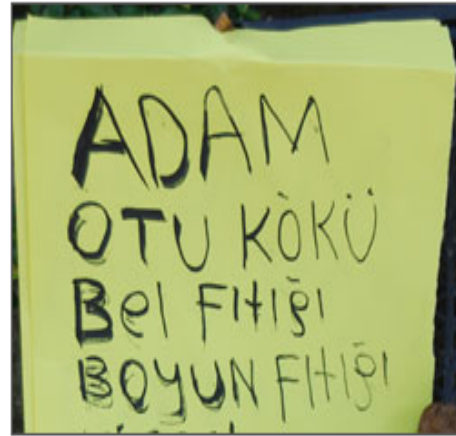 ADAM
OTU KÖKÜ
Bel FITIĞI
BOYUN FITIĞI